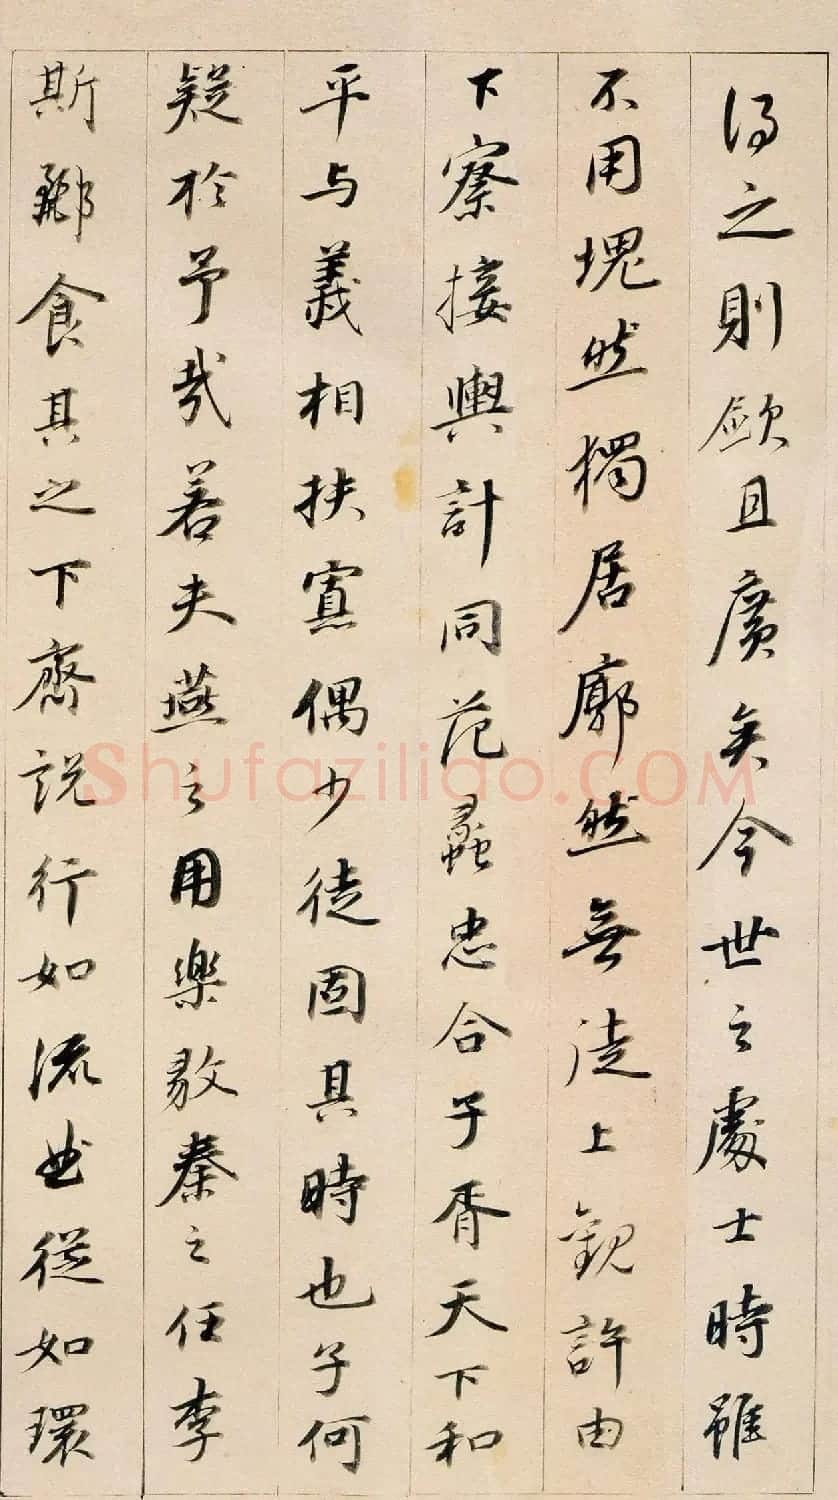 得之則歛且廣矣今世之處士時雖
不用塊然獨居廓然無徒上觀許由
下察接輿計同范蠡忠合子胥天下和
平与義相扶寡偶少徒固其時也子何
疑於予哉若夫燕之用樂毅秦之任李
斯酈食其之下齊説行如流曲從如環
Shufaziliao.COM